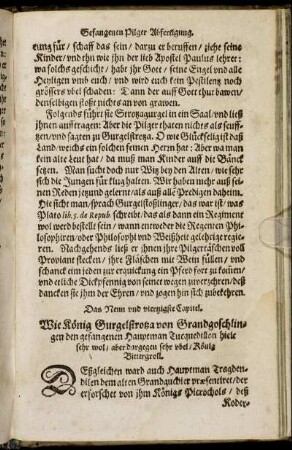 Gefangenen Pilger Abfertigung.
tung für / schaff das sein / darzu er beruffen / ziehe seine
Kinder / vnd thu wie jhn der lieb Apostel Paulus lehret:
wa solchs geschicht / habt jhr Gott / seine Engel vnd alle
Heyligen vmb euch / vnd wird euch kein Pestilentz noch
grössers vbel schaden: Dann der auff Gott thut bawen /
denselbigen stoßt nichts an von grawen.
Folgends führt sie Strotzagurgel in ein Saal / vnd ließ
jhnen aufftragen: Aber die Pilger thaten nichts als seuff-
tzen / vnd sagten zu Gurgelstrotza. O wie Glückselig ist daß
Land / welchs ein solchen seinen Herrn hat: Aber wa man
kein alte Leut hat / da muß man Kinder auff die Bänck
setzen. Man sucht doch nur Witz bey den Alten / wie sehr
sich die Jungen für klug halten. Wir haben mehr auß sei-
nen Reden jetzund gelernt / als auß alle Predigen daheim.
Die sicht man / sprach Gurgelstroßlinger / das war ist / was
Plato lib. 5. de Repub. schreibt / das als dann ein Regiment
wol werd bestellt sein / wann entweder die Regenten Phi-
losophiren / oder Philosophi vnd Weißheit geichrige regie-
ren. Nachgehends ließ er jhnen ihre Pilgertäschen voll
Proviant stecken / ihre Fläschen mit Wein füllen / vnd
schanckt eim jeden zur erquickung ein Pferd fort zu kom̃en /
vnd etliche Dickpfennig von seinet wegen zuverzehren / deß
dancken sie jhm der Ehren / vnd zogen hin sich zubekehren.
Das Neun vnd viertzigste Capitel.
Wie König Gurgelstrotza von Grandgoschlin-
gen den gefangenen Hauptman Tucquedillon hielt
sehr wol / aber dargegen sehr vbel / König
Bittergroll.
DEßgleichen ward auch Hauptman Tragden-
dilen dem alten Grandguchier præsentiret / der
erforschet von jhm Königs Picrochols / deß
Koder-